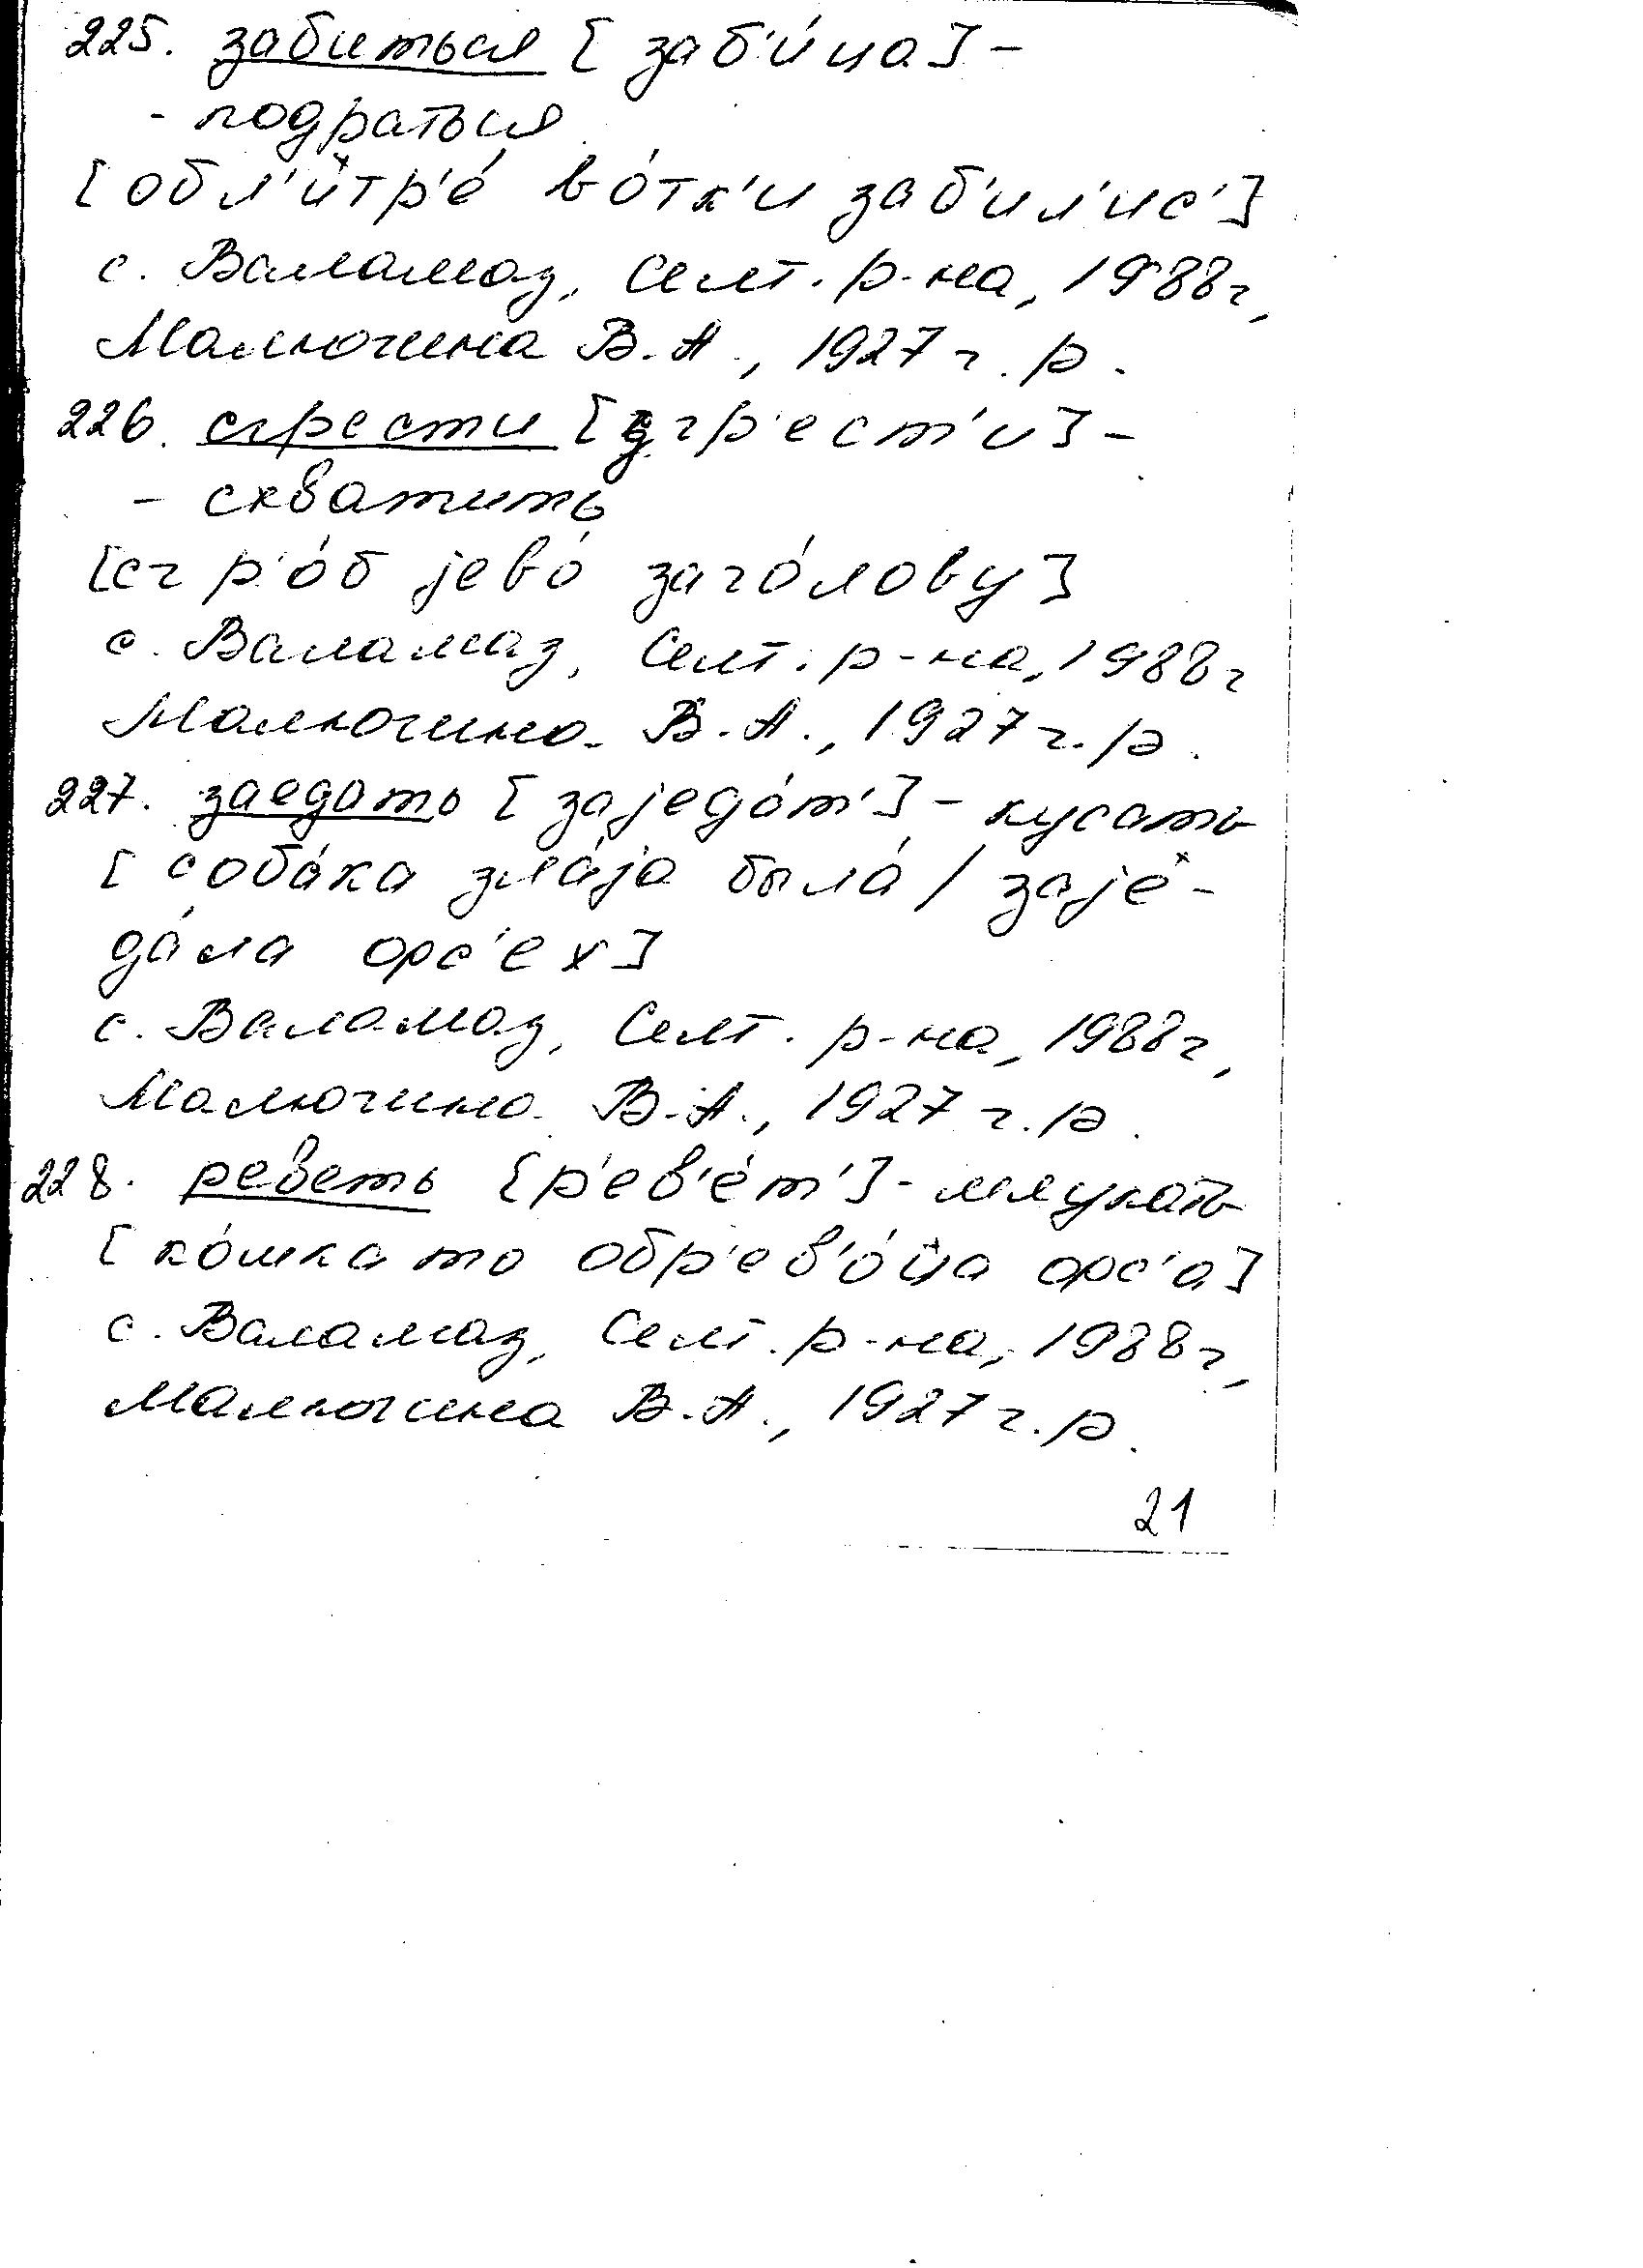 225. забиться [заб'и́ца] –
- подраться
[обл'итр'е́ во́тк'и заб'ил'ис']
с. Валамаз, Селт. р-на, 1988г,
Малючина В.А., 1927 г.р.
226. сгрести [згр'ест'и] –
– схватить
[сгр'о́б јево́ заго́лову]
с. Валамаз, Селт. р-на, 1988г
Малючина В.А., 1927 г.р.
227. заедать [заједа́т'] – кусать
[соба́ка зла́ја была́ / заје-
да́ла фс'ех]
с. Валамаз, Селт. р-на, 1988г,
Малючина В.А., 1927 г.р.
228. реветь [р'ев'е́т'] - мяукать
[ко́шка то обр'ев'о́ца фс'а]
с. Валамаз, Селт. р-на, 1988г,
Малючина В.А., 1927 г.р.
21